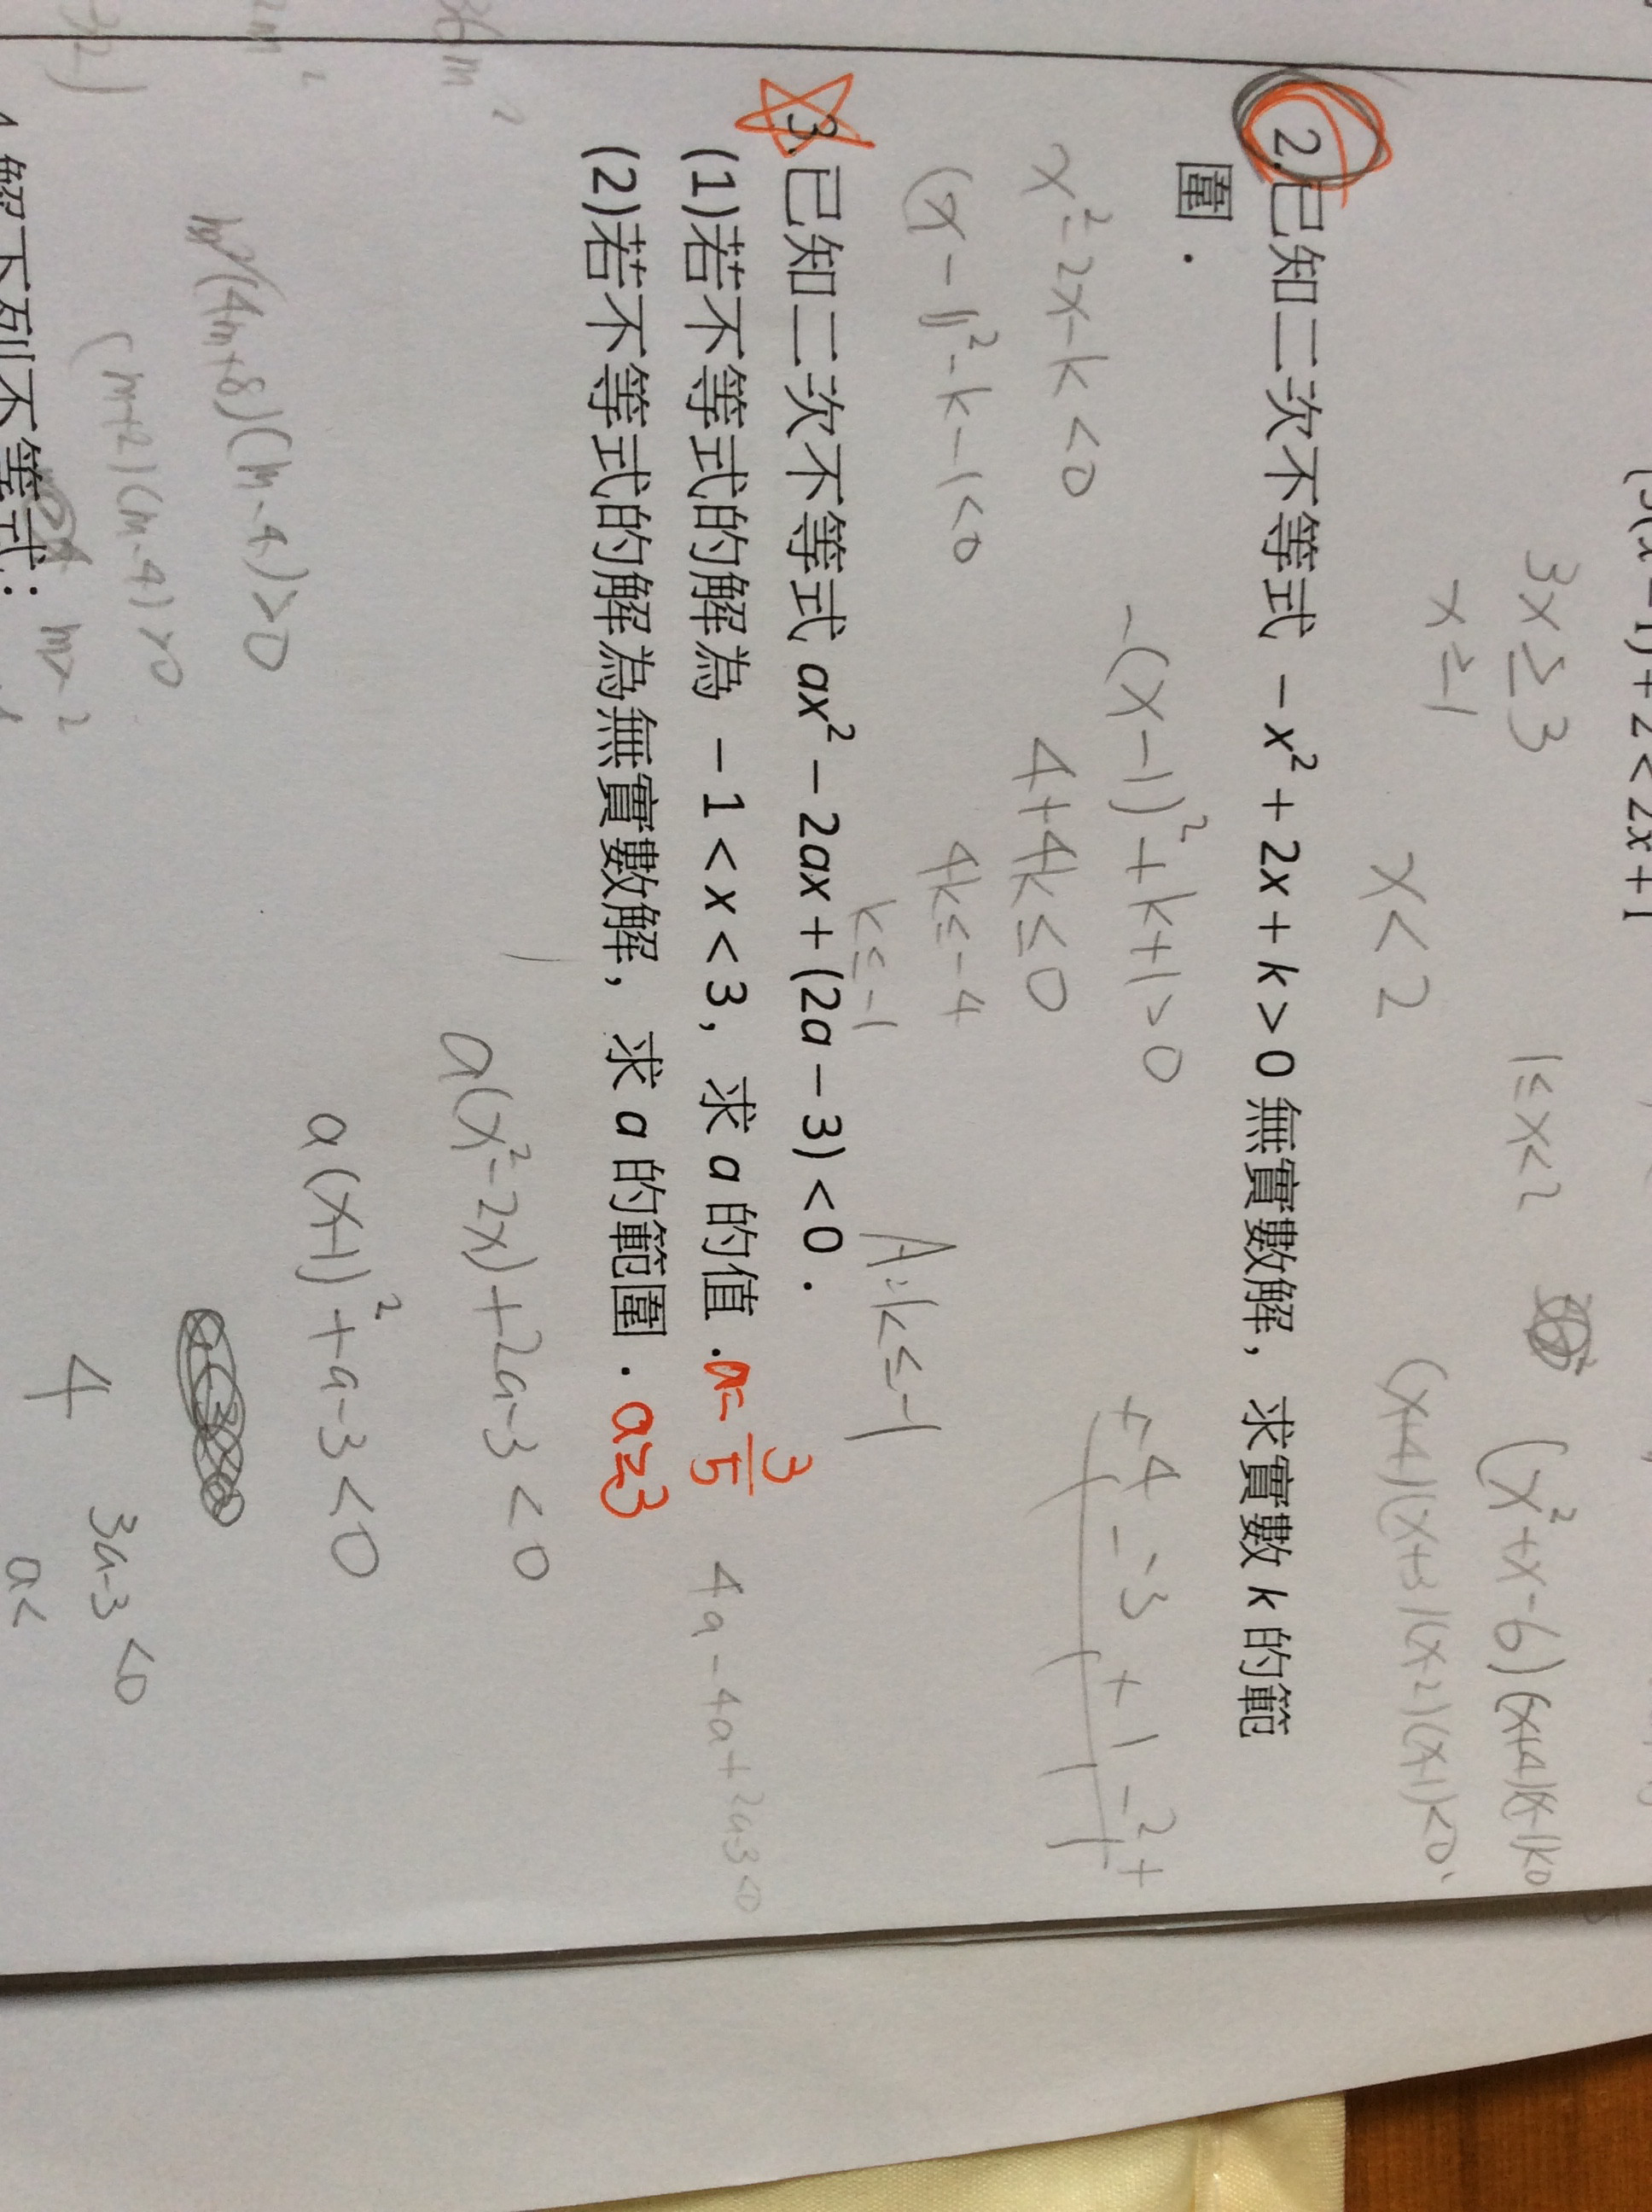 (x-1)+2<2x+1
3x≥3
x≥1
x<2
1≤x<2
(x²+x-6)(x+4)(x-1)<0
(x+4)(x+3)(x-2)(x-1)<0
2.已知二次不等式 -x²+2x+k>0 無實數解,求實數 k 的範
圍.
-(x-1)²+k+1>0
x²-2x-k<0
4+4k≤0
(x-1)²-k-1<0
4k≤-4
k≤-1
A:k≤-1
+ -4 - -3 + 1 - 2 +
3.已知二次不等式 ax²-2ax+(2a-3)<0.
(1)若不等式的解為 -1<x<3,求 a 的值.a=3/5
4a-4a+2a-3<0
(2)若不等式的解為無實數解,求 a 的範圍.a≥3
a(x²-2x)+2a-3<0
a(x-1)²+a-3<0
36m²
m²(4m+8)(m-4)>0
(m+2)(m-4)>0
3a-3<0
4
a<
解下列不等式: